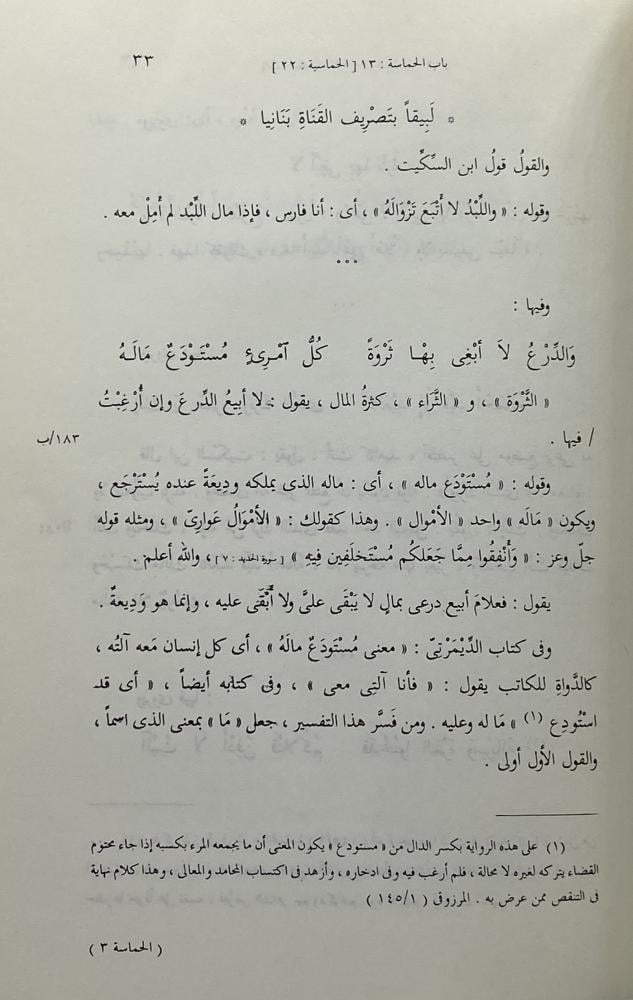 باب الحماسة : ١٣ [ الحماسية : ٢٢ ]
٣٣
* لَبِيقاً بتَصْرِيف القَنَاةِ بَنَانِيا *
والقولُ قولُ ابن السِّكِّيت .
وقوله : « واللِّبْدُ لا أَتْبَعَ تَزْوَالَهُ » ، أى : أنا فارس ، فإذا مال اللِّبْد لم أَمِلْ معه .
***
وفيها :
وَالدِّرْعُ لاَ أبْغِى بِهْا ثَرْوَةً كُلُّ آمْرِئٍ مُسْتَوْدَعٌ مَالَهُ
« الثَّرْوَة » ، و « الثَّرَاء » ، كثرةُ المال ، يقول : لا أبِيعُ الدِّرعَ وإن أُرْغِبْتُ
/ فيها .
١٨٣/ب
وقوله : « مُسْتَوْدَع ماله » ، أى : ماله الذى يملكه ودِيعَةً عنده يُسْتَرْجَع ،
ويكون « مَالَه » واحد « الأمْوال » . وهذا كقولك : « الأمْوَالُ عَوارِىّ » ، ومثله قوله
جلّ وعز : « وَأَنْفِقُوا مِمَّا جَعَلَكُم مُسْتَخلَفِين فِيهِ » [ سورة الحديد : ٧ ] ، والله أعلم .
يقول : فعلامَ أبيع درعى بمالٍ لا يَبْقَى علىَّ ولا أَبْقَى عليه ، وإنما هو وَدِيعةٌ .
وفى كتاب الدِّيْمَرْتِىّ : « معنى مُسْتَودَعٌ مالَهُ » ، أى كل إنسان مَعه آلتُه ،
كالدَّواةِ للكاتب يقول : « فأنا آلتِى معى » ، وفى كتابه أيضاً ، « أى قد
استُودِع (١) » مَا له وعليه . ومن فَسَّر هذا التفسير ، جعل « مَا » بمعنى الذى اسماً ،
والقول الأول أولى .
(١) على هذه الرواية بكسر الدال من « مستودع » يكون المعنى أن ما يجمعه المرء بكسبه إذا جاء محتوم
القضاء يتركه لغيره لا محالة ، فلم أرغب فيه وفى ادخاره ، وأزهد فى اكتساب المحامد والمعالى ، وهذا كلام نهاية
فى التنقص ممن عرض به . المرزوقى ( ١٤٥/١ )
( الحماسة ٣ )